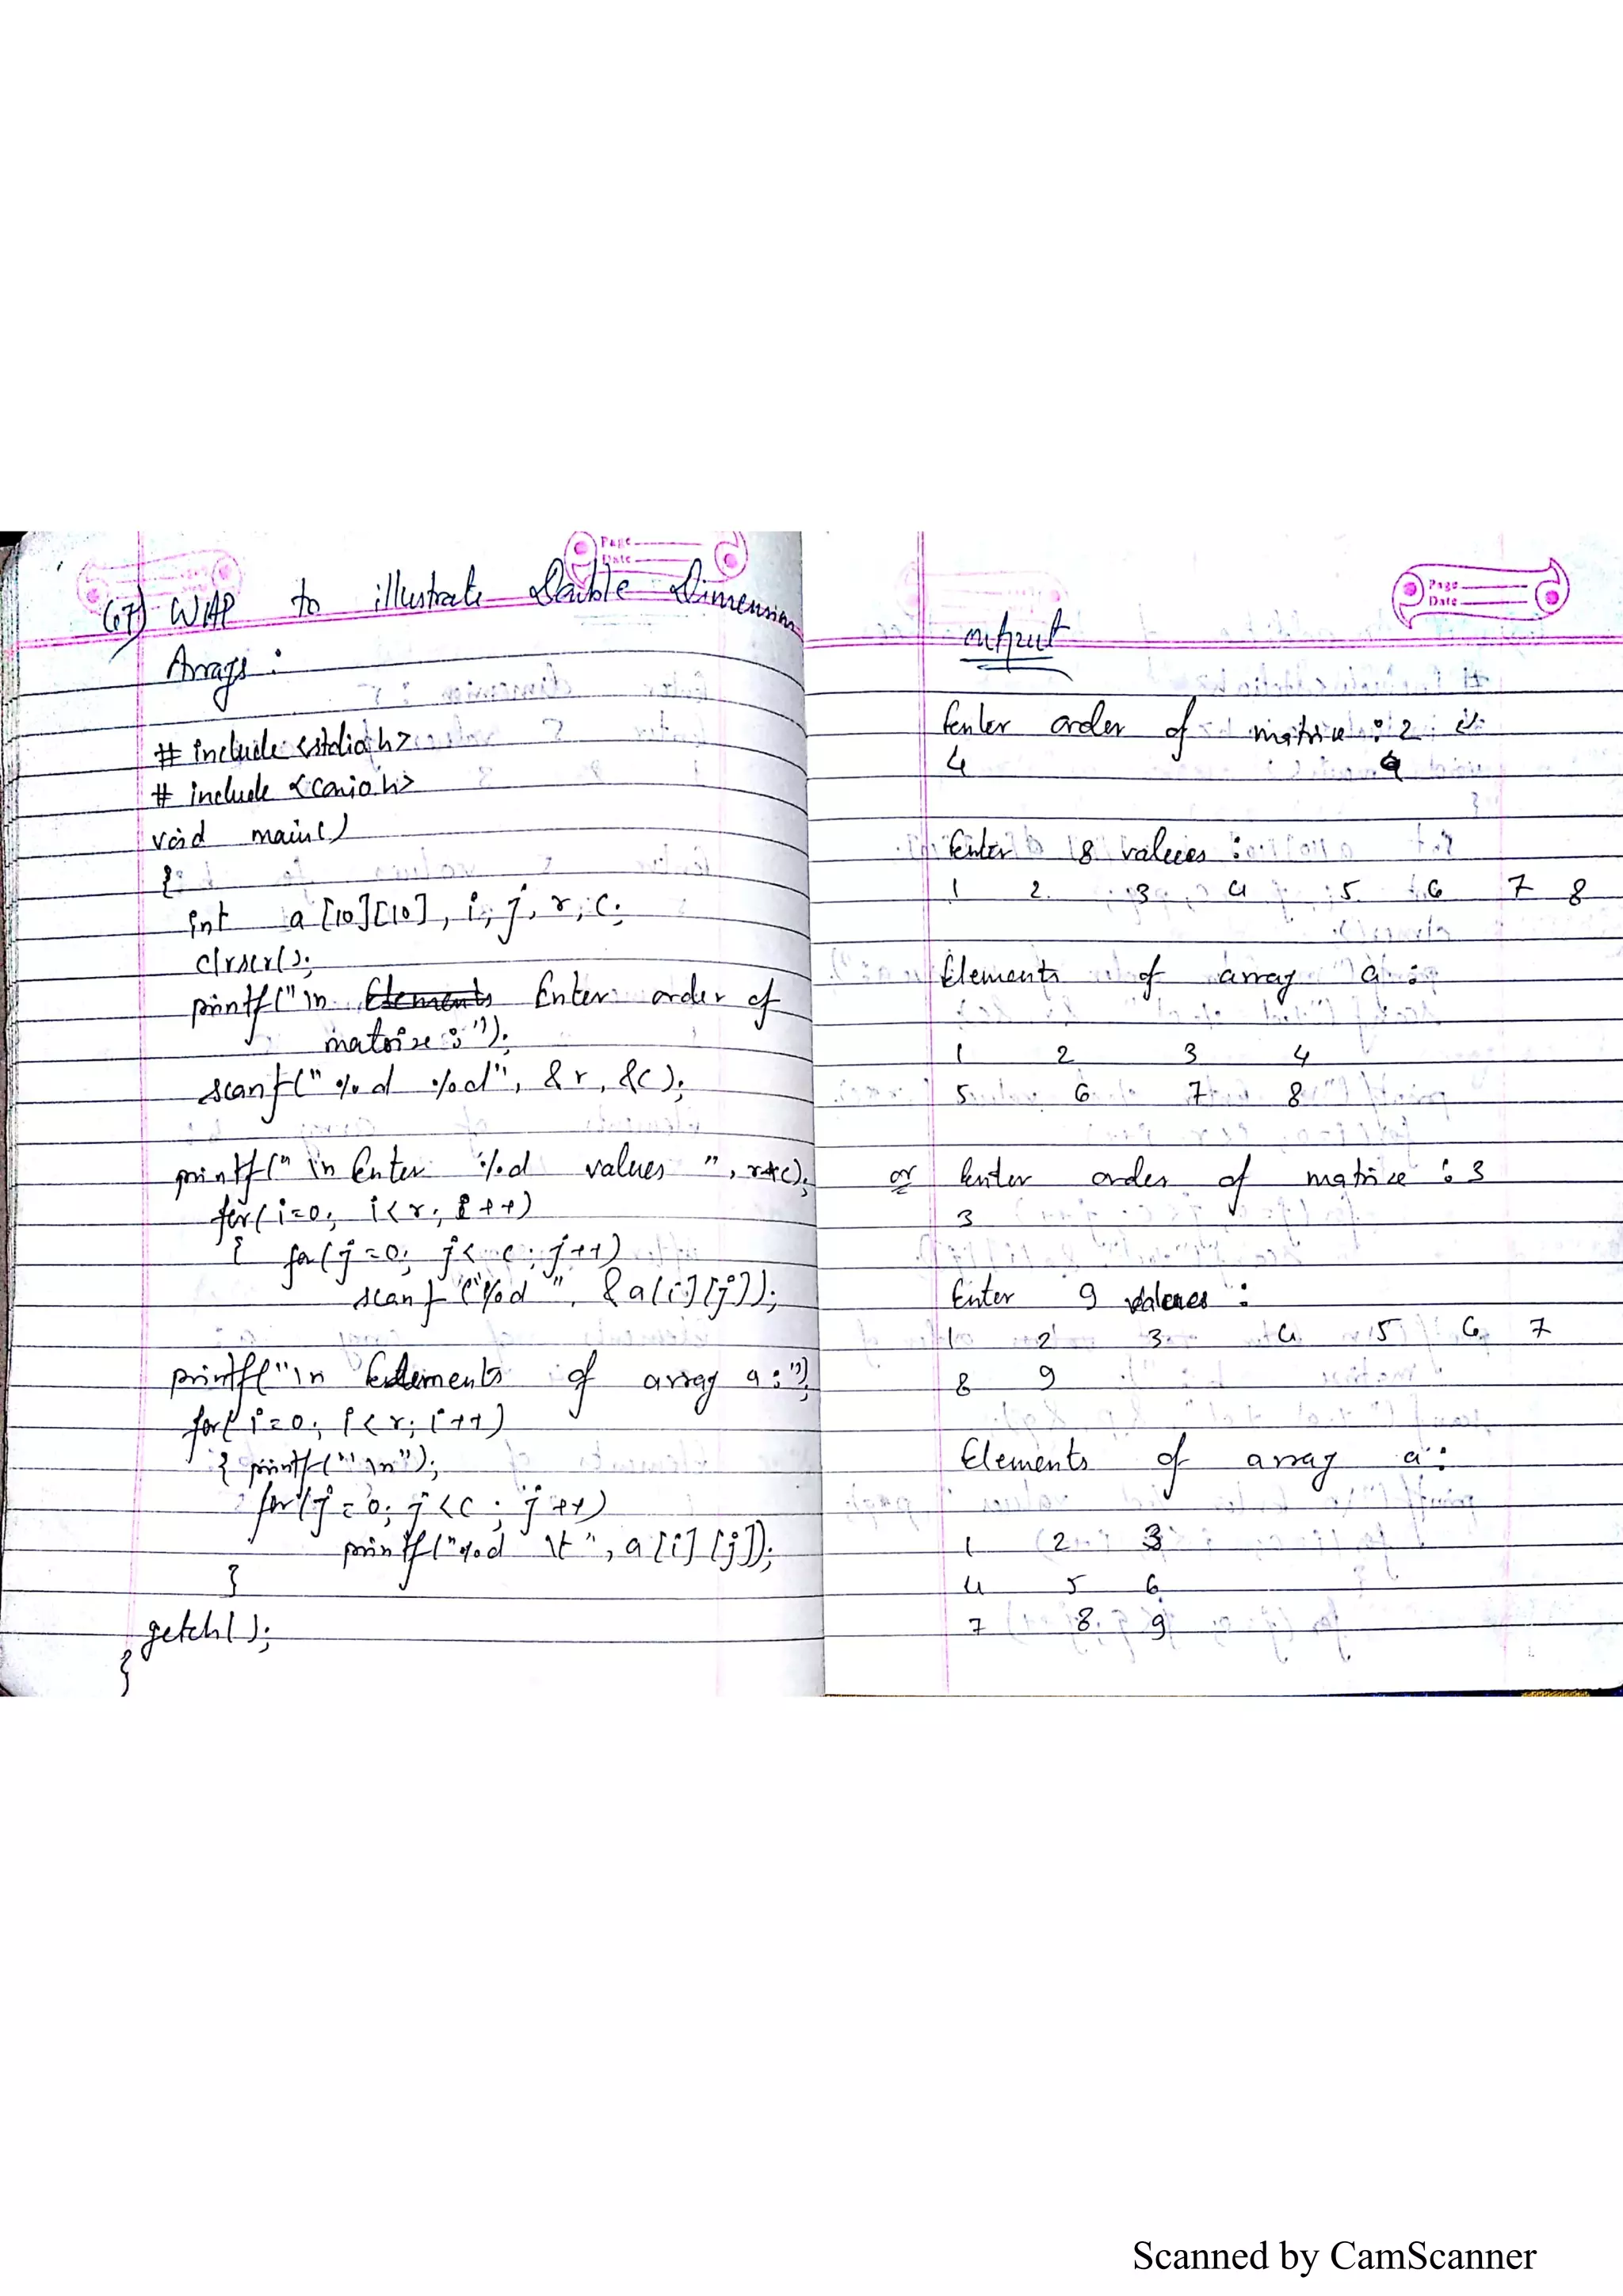 (67) WAP to illustrate Double Dimension
Arrays :
# include <stdio.h>
# include <conio.h>
void main()
{
int a[10][10], i, j, r, c;
clrscr();
printf("\n Enter order of
matrix : ");
scanf("%d %d", &r, &c);
printf("\n Enter %d values ", r*c);
for(i=0; i<r; i++)
{ for(j=0; j<c; j++)
scanf("%d", &a[i][j]);
printf("\n Elements of array a : ");
for(i=0; i<r; i++)
{ printf("\n");
for(j=0; j<c; j++)
printf("%d \t", a[i][j]);
}
getch();
}
Page
Date
output
Page
Date
Enter order of matrix : 2
4
Enter 8 values :
1 2 3 4 5 6 7 8
Elements of array a :
1 2 3 4
5 6 7 8
or Enter order of matrix : 3
3
Enter 9 values :
1 2 3 4 5 6 7
8 9
Elements of array a :
1 2 3
4 5 6
7 8 9
Scanned by CamScanner